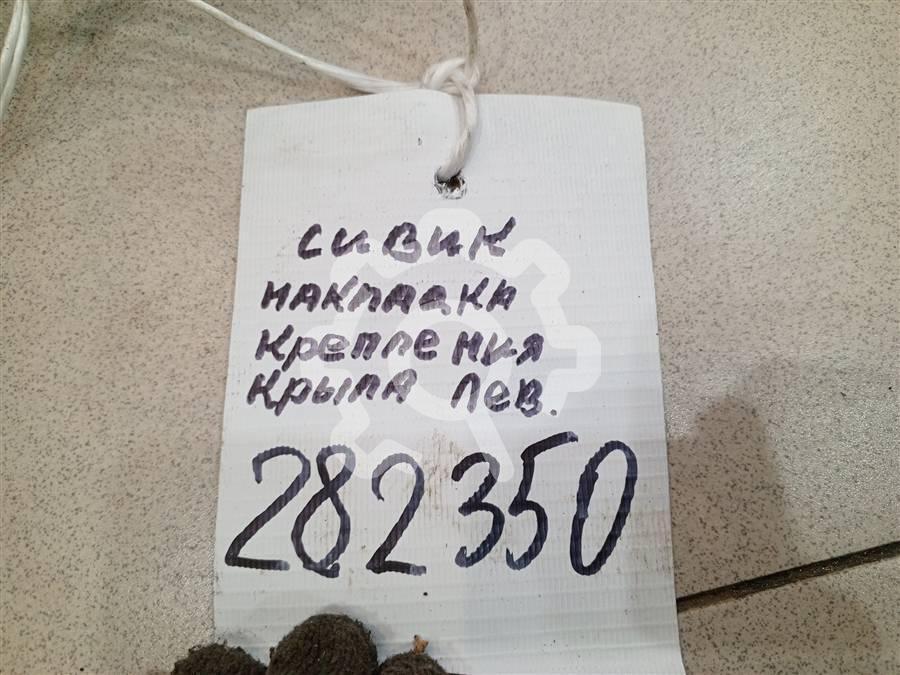 сивик
накладка
крепления
крыла лев.
282350